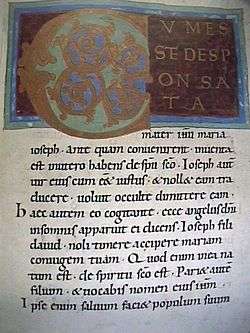 C VM ES
SET DESP
ON SA
TA
mater illi maria
ioseph · ante quam convenirent · inventa
est in utero habens de spu sco · Ioseph aut
vir eius cum eet iustus · & nollet eam tra
ducere · voluit occulte dimittere eam ·
haec autem eo cogitante · ecce angelus dni
in somnis apparuit ei dicens · Ioseph fili
david · noli timere accipere mariam
coniugem tuam · Quod enim in ea na
tum est · de spiritu sco est · Pariet aut
filium · & vocabis nomen eius ihm
Ipse enim salvum faciet populum suum